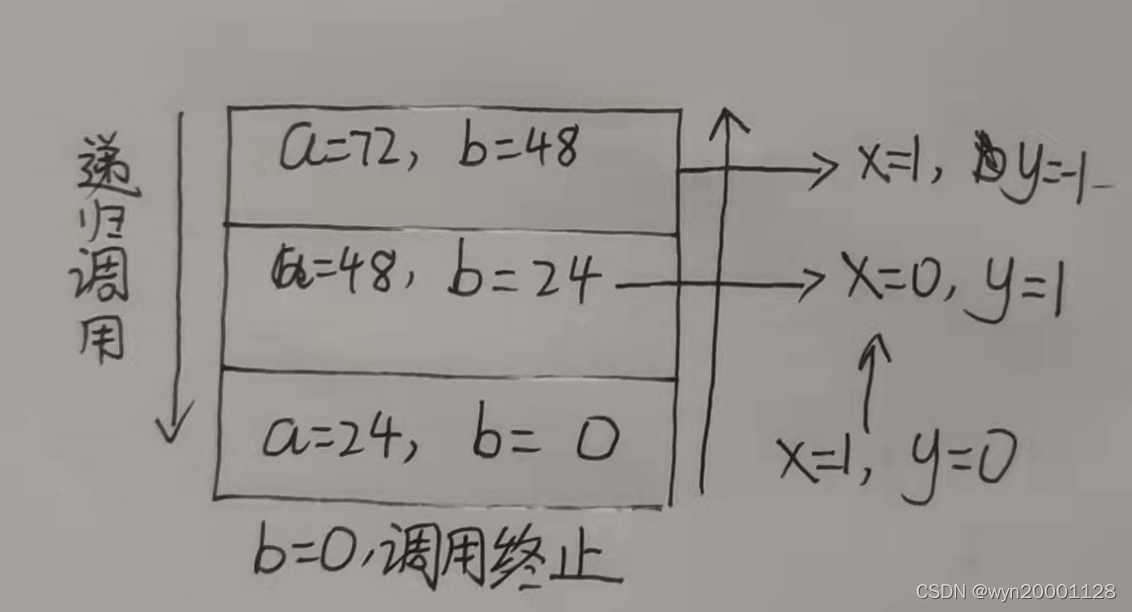 递归调用
a=72, b=48
x=1, y=-1
a=48, b=24
x=0, y=1
a=24, b=0
x=1, y=0
b=0,调用终止
CSDN @wyn20001128